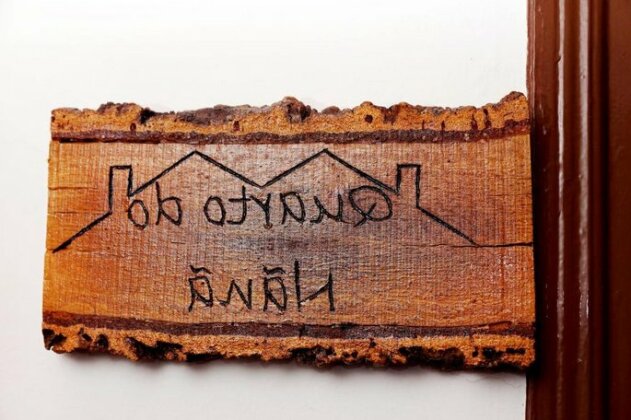 Quarto do
Nãnã